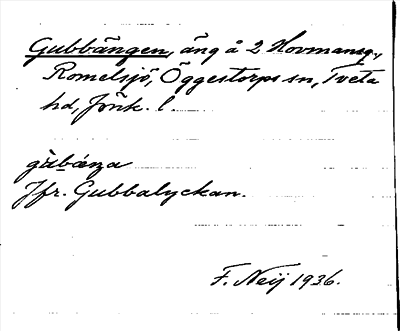 Gubbängen, äng å 2 Hovmansg.,
Romelsjö, Öggestorps sn, Tveta
hd, Jönk. l.
Jfr. Gubbalyckan.
F. Neij 1936.